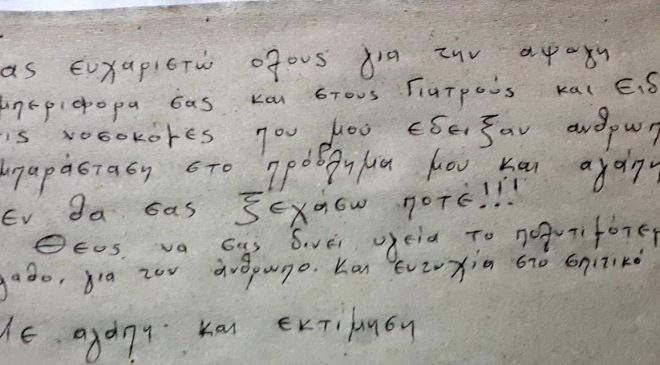 ας ευχαριστώ ολους για την αψογη
μπεριφορα σας και στους Γιατρούς και Ειδ
ις νοσοκόμες που μου εδειξαν ανθρωπ
μπαράσταση στο πρόβλημα μου και αγάπη
εν θα σας ξεχάσω ποτέ!!!
Θεος να σας δινει υγεία το πολυτιμότερ
γαθο, για τον άνθρωπο. Και ευτυχία στο σπιτικό
Με αγάπη και εκτίμηση